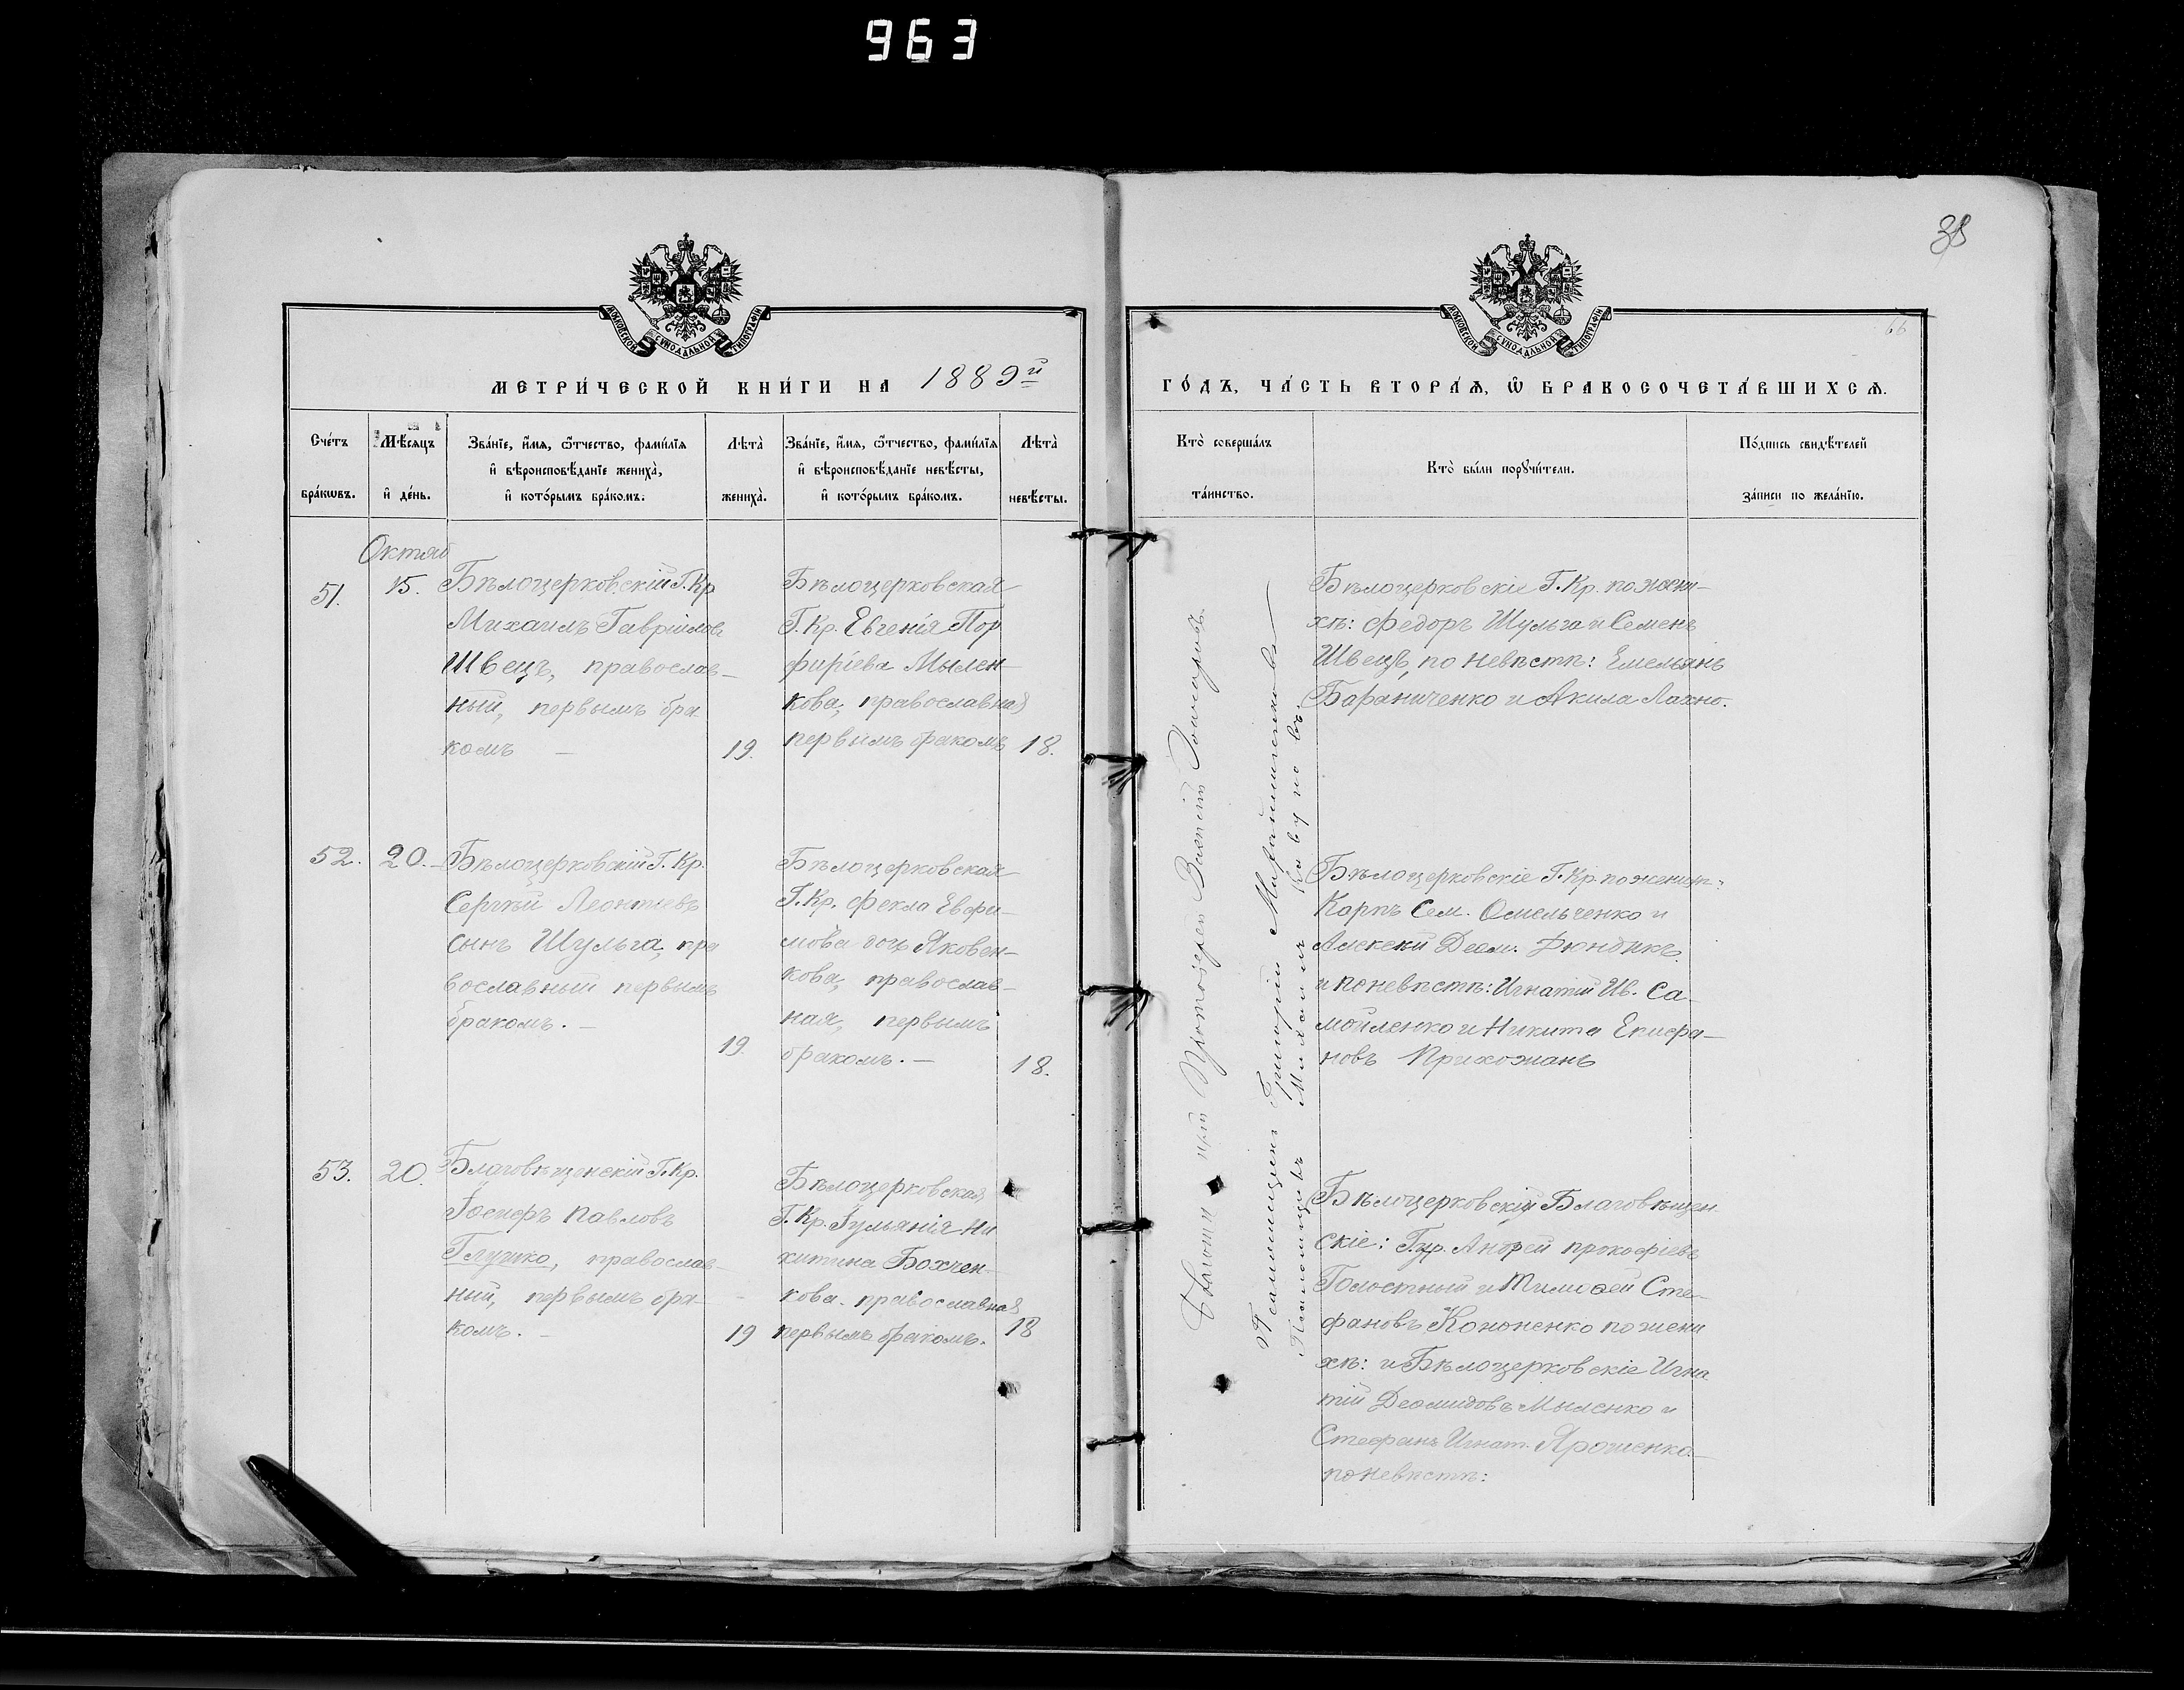 963
38
66
МОСКОВСКОЙ СѴНОДАЛЬНОЙ ТИПОГРАФІИ
МОСКОВСКОЙ СѴНОДАЛЬНОЙ ТИПОГРАФІИ
МЕТРИ́ЧЕСКОЙ КНИ́ГИ НА 1889й
ГО́ДЪ, ЧА́СТЬ ВТОРА́Ѧ, Ѽ БРАКОСОЧЕТА́ВШИХСѦ.
Сче́тъ бра́кωвъ.
Мѣ́сяцъ и҆ де́нь.
Зва́нїе, и҆́мя, ѻ҆́тчество, фами́лїя
и҆ вѣроисповѣ́данїе жениха̀,
и҆ кото́рымъ бра́комъ.
Лѣта̀ жениха̀.
Зва́нїе, и҆́мя, ѻ҆́тчество, фами́лїя
и҆ вѣроисповѣ́данїе невѣ́сты,
и҆ кото́рымъ бра́комъ.
Лѣта̀ невѣ́сты.
Кто̀ соверша́лъ та́инство.
Кто̀ бы́ли порꙋчи́тели.
По́дпись свидѣ́телей
за́писи по жела́нїю.
Октяб
51.
15.
Бѣлоцерковскій Г. Кр
Михаилъ Гавріиловъ
Швецъ, православ-
ный, первымъ бра-
комъ —
19.
Бѣлоцерковская
Г. Кр. Евгенія Пор
фиріева Мылен-
кова, православная
первымъ бракомъ
18.
Бѣлоцерковскіе Г. Кр. по жени-
хѣ: Федоръ Шульга и Семенъ
Швецъ, по невѣстѣ: Емельянъ
Бараниченко и Акила Лахно.
52.
20.
Бѣлоцерковскій Г. Кр.
Сергѣй Леонтіевъ
сынъ Шульга, пра
вославный первымъ
бракомъ. —
19.
Бѣлоцерковская
Г. Кр. Фекла Евфи-
мова дочь Яковен-
кова, православ-
ная, первымъ
бракомъ. —
18.
Бѣлоцерковскіе Г. Кр. по женихѣ:
Карпъ Сем. Омельченко и
Алексѣй Деом. Дюндикъ.
и по невѣстѣ: Игнатій Ив. Са-
мойленко и Никита Епифа-
новъ Прихожанъ
53.
20.
Благовѣщенскій Г. Кр.
Іосифъ Павловъ
Глушко, православ-
ный, первымъ бра-
комъ. —
19
Бѣлоцерковская
Г. Кр. Іульянія Ни
китина Бохчен-
кова. православная
первымъ бракомъ.
18
Бѣлоцерковскій Благовѣщен
скіе: Андрей Прокофіевъ
и Тимофей Сте-
фановъ Кононенко по жени
хѣ: и Бѣлоцерковскіе Игна
тій Деомидовъ Мыленко и
Стефанъ Игнат. Ярошенко
по невѣстѣ:
Протоіерей Василій
Псаломщикъ Григорій
Псаломщикъ Михаилъ